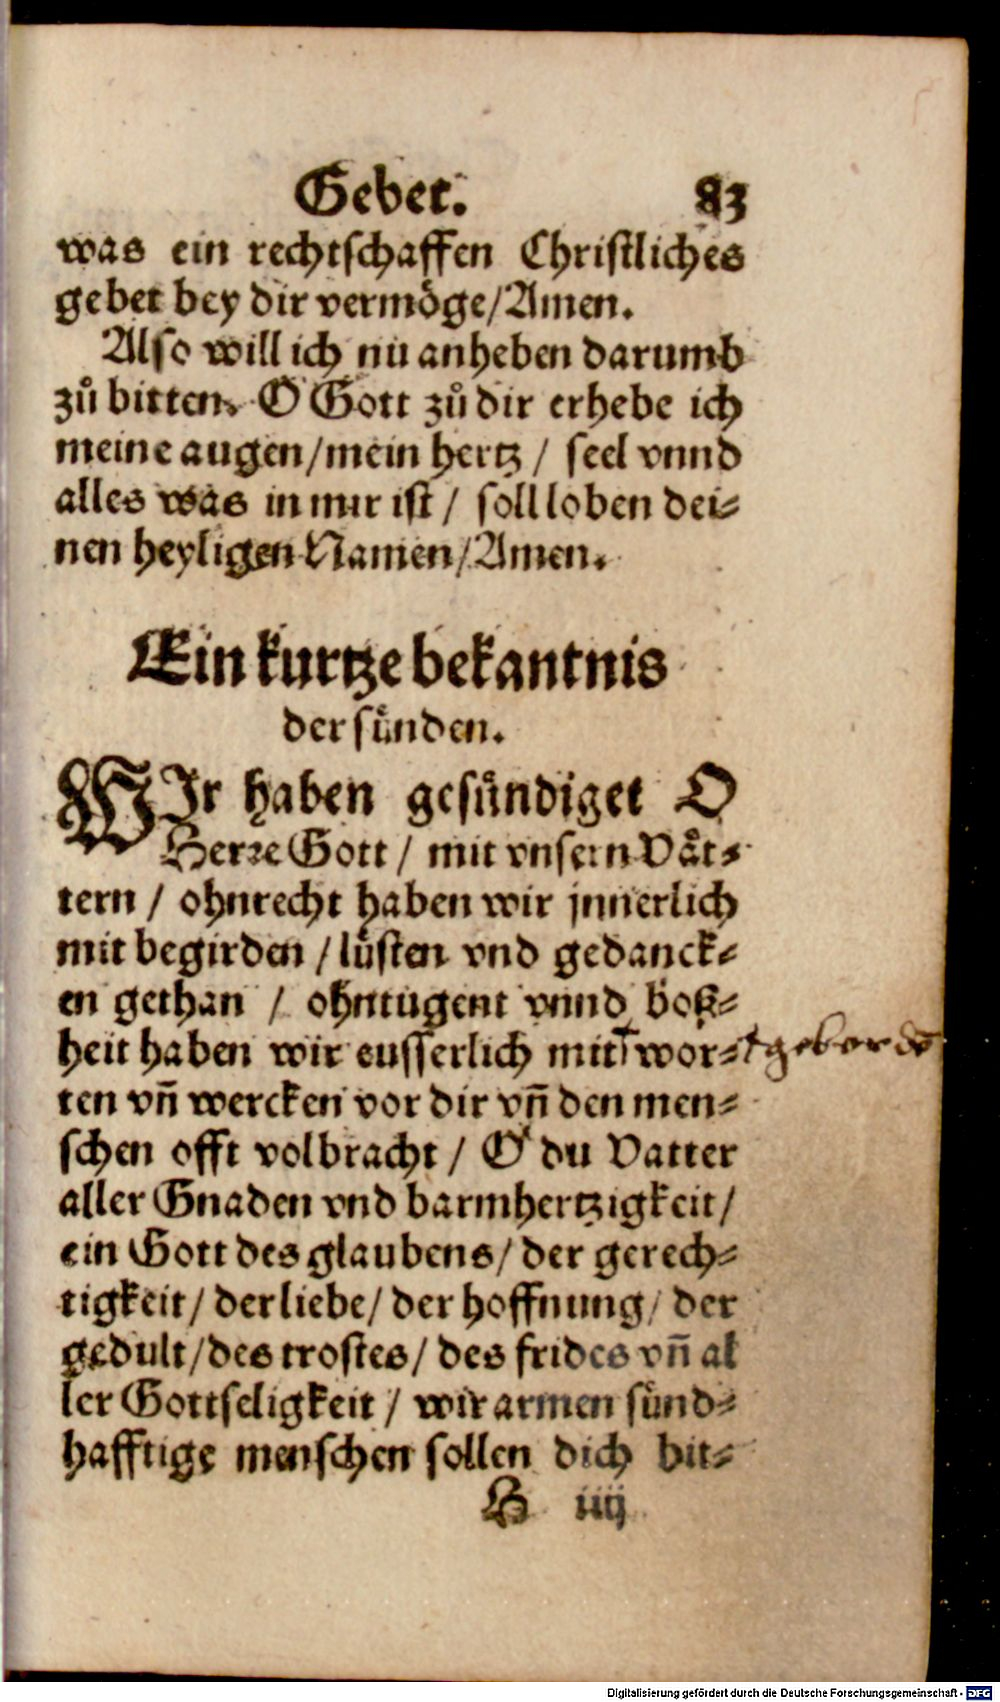 Gebet. 83
was ein rechtschaffen Christliches
gebet bey dir vermöge/Amen.
Also will ich nu anheben darumb
zů bitten. O Gott zů dir erhebe ich
meine augen/mein hertz / seel vnnd
alles was in mir ist / soll loben dei⸗
nen heyligen Namen/Amen.
Ein kurtze bekantnis
der sünden.
WIr haben gesündiget O
Herre Gott / mit vnsern Vät⸗
tern / ohnrecht haben wir jnnerlich
mit begirden /lüsten vnd gedanck⸗
en gethan / ohntugent vnnd boß⸗
heit haben wir eusserlich mit† wor⸗ †geberdē
ten vñ wercken vor dir vñ den men⸗
schen offt volbracht / O du Vatter
aller Gnaden vnd barmhertzigkeit/
ein Gott des glaubens/ der gerech⸗
tigkeit/ der liebe/ der hoffnung/ der
gedult/des trostes/ des frides vñ al
ler Gottseligkeit / wir armen sünd⸗
hafftige menschen sollen dich bit⸗
H iiij
Digitalisierung gefördert durch die Deutsche Forschungsgemeinschaft - DFG